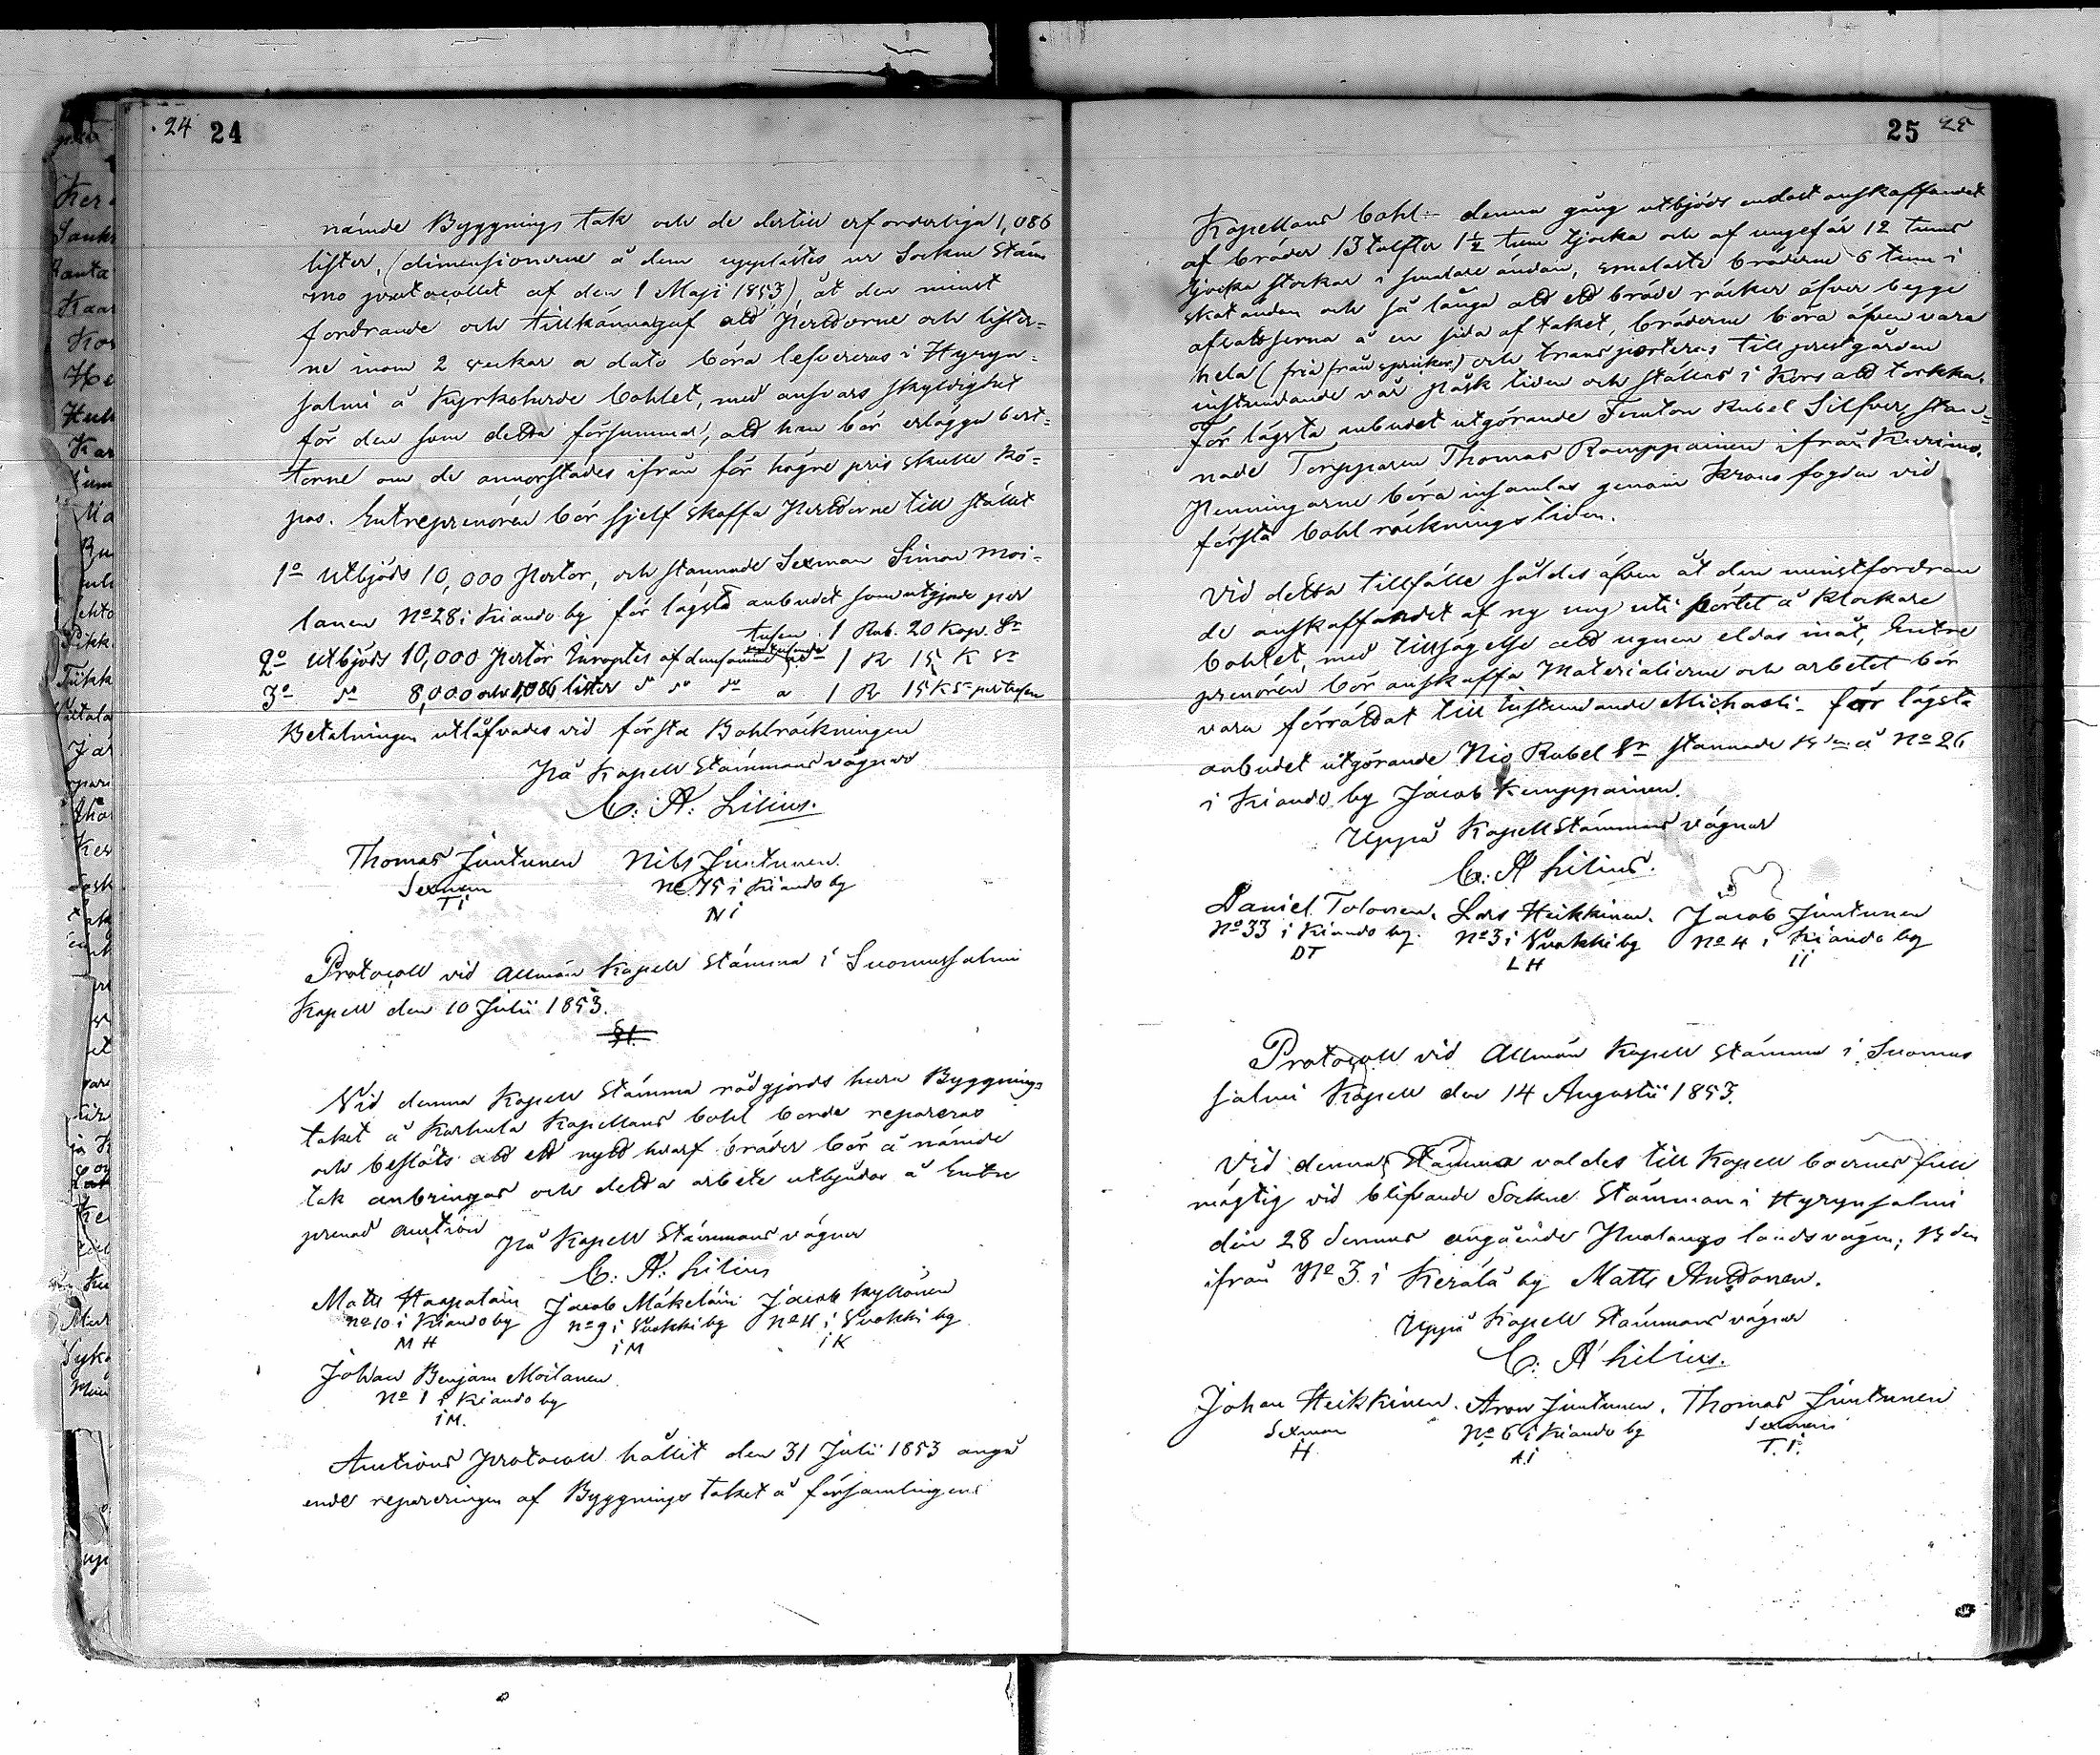 24 24
nämde Byggnings tak och de dertill erforderliga 1,086
lister, (dimensionerne å dem upplästes ur Sockne Stäm
mo protocollet af den 1 Maji 1853), åt den minst
fordrande och tillkännagaf att Pertorne och lister=
ne inom 2 veckar a dato böra lefvereras i Hyryn=
salmi å Kyrkoherde bohlet, med ansvars skyldighet
för den som detta försummar, att han bör erlägga
om de annorstädes ifrån för högre pris skulle kö=
pas. Entreprenören bör sjelf skaffa Pertorne till stället
1o Utbjöds 10,000 Pertor, och stannade Sexman Simon Moi=
lanen No 28 i Kiando by för lägsta anbudet som utgjorde per
tusen 1 Rub. 20 Kop. Sr
2o Utbjöds 10,000 Pertor Inroptes af densamme 1 R 15 K Sr
3o do 8,000 och 1,086 lister do do do a 1 R 15 K Sr per tusen
Betalningen utlåfvades vid första Bohlräkningen
På Kapell Stämmans vägnar
C: A: Lilius.
Thomas Juntunen Nils Juntunen.
Sexman No 75 i Kiando by
T i N i
Protocoll vid Allmän Kapell Stämma i Suomussalmi
Kapell den 10 Julii 1853.
§1.
Vid denna Kapell Stämma rådgjordes huru Byggnings
taket å Karhula Kapellans bohl borde repareras
och beslöts att ett nytt hvarf bräder bör å nämde
tak anbringas och detta arbete utbjudas å Entre
prenad auction
På Kapell Stämmans vägnar
C: A: Lilius
Matts Haapalain Jacob Mäkeläin Jacob Kyllönen
No 10 i Kiando by No 9 i Vuokki by No 11 i Vuokki by
M H i M i K
Johan Benjam Moilanen
No 1 i Kiando by
i M.
Auctions Protocoll hållit den 31 Julii 1853 angå
ende repareringen af Byggnings taket å församlingens
25 25
Kapellans bohl:- denna gång utbjöds endast anskaffandet
af bräder 13 tolfter 1½ tum tjocka och af ungefär 12 tums
tjocka stockar i smalare ändan, smalaste bräderne 6 tum i
skat ändan och så långa att ett bräde räcker öfver begge
afsatserna å en sida af taket, bräderne böra äfven vara
hela (fria från sprickor) och transporteras till prestgården
instundande vår påsk tiden och ställas i Kors att torkka.
För lägsta anbudet utgörande Femton Rubel Silfver stan=
nade Torpparen Thomas Romppainen ifrån Kurimo.
Penningarne böra insamlas genom Kronofogden vid
första bohl räkningstiden.
Vid detta tillfälle såldes äfven åt den minstfordran
de anskaffandet af ny ugn uti pörtet å Klockare
bohlet, med tillsägelse att ugnen eldas inåt, Entre
prenören bör anskaffa Materialierne och arbetet bör
vara förrättat till instundande Michaeli- för lägsta
anbudet utgörande Nio Rubel Sr stannade Bden å No 26
i Kiando by Jacob Kemppainen.
Uppå Kapell Stämmans vägnar
C: A Lilius.
Daniel Tolonen. Lars Heikkinen. Jacob Juntunen
No 33 i Kiando by. No 3 i Vuokki by No 4 i Kiando by
DT L H i i
Protocoll vid Allmän Kapell Stämma i Suomus
salmi Kapell den 14 Augustii 1853.
Vid denna Stämma valdes till Kapell boernes full
mägtig vid blifvande Sockne Stämman i Hyrynsalmi
den 28 dennes angående Puolango landsvägen; Bden
ifrån No 3 i Kerälä by Matts Anttonen.
Uppå Kapell Stämmans vägnar
C: A Lilius.
Johan Heikkinen. Aron Juntunen. Thomas Juntunen
Sexman No 6 i Kiando by Sexman
H A.i T. i.